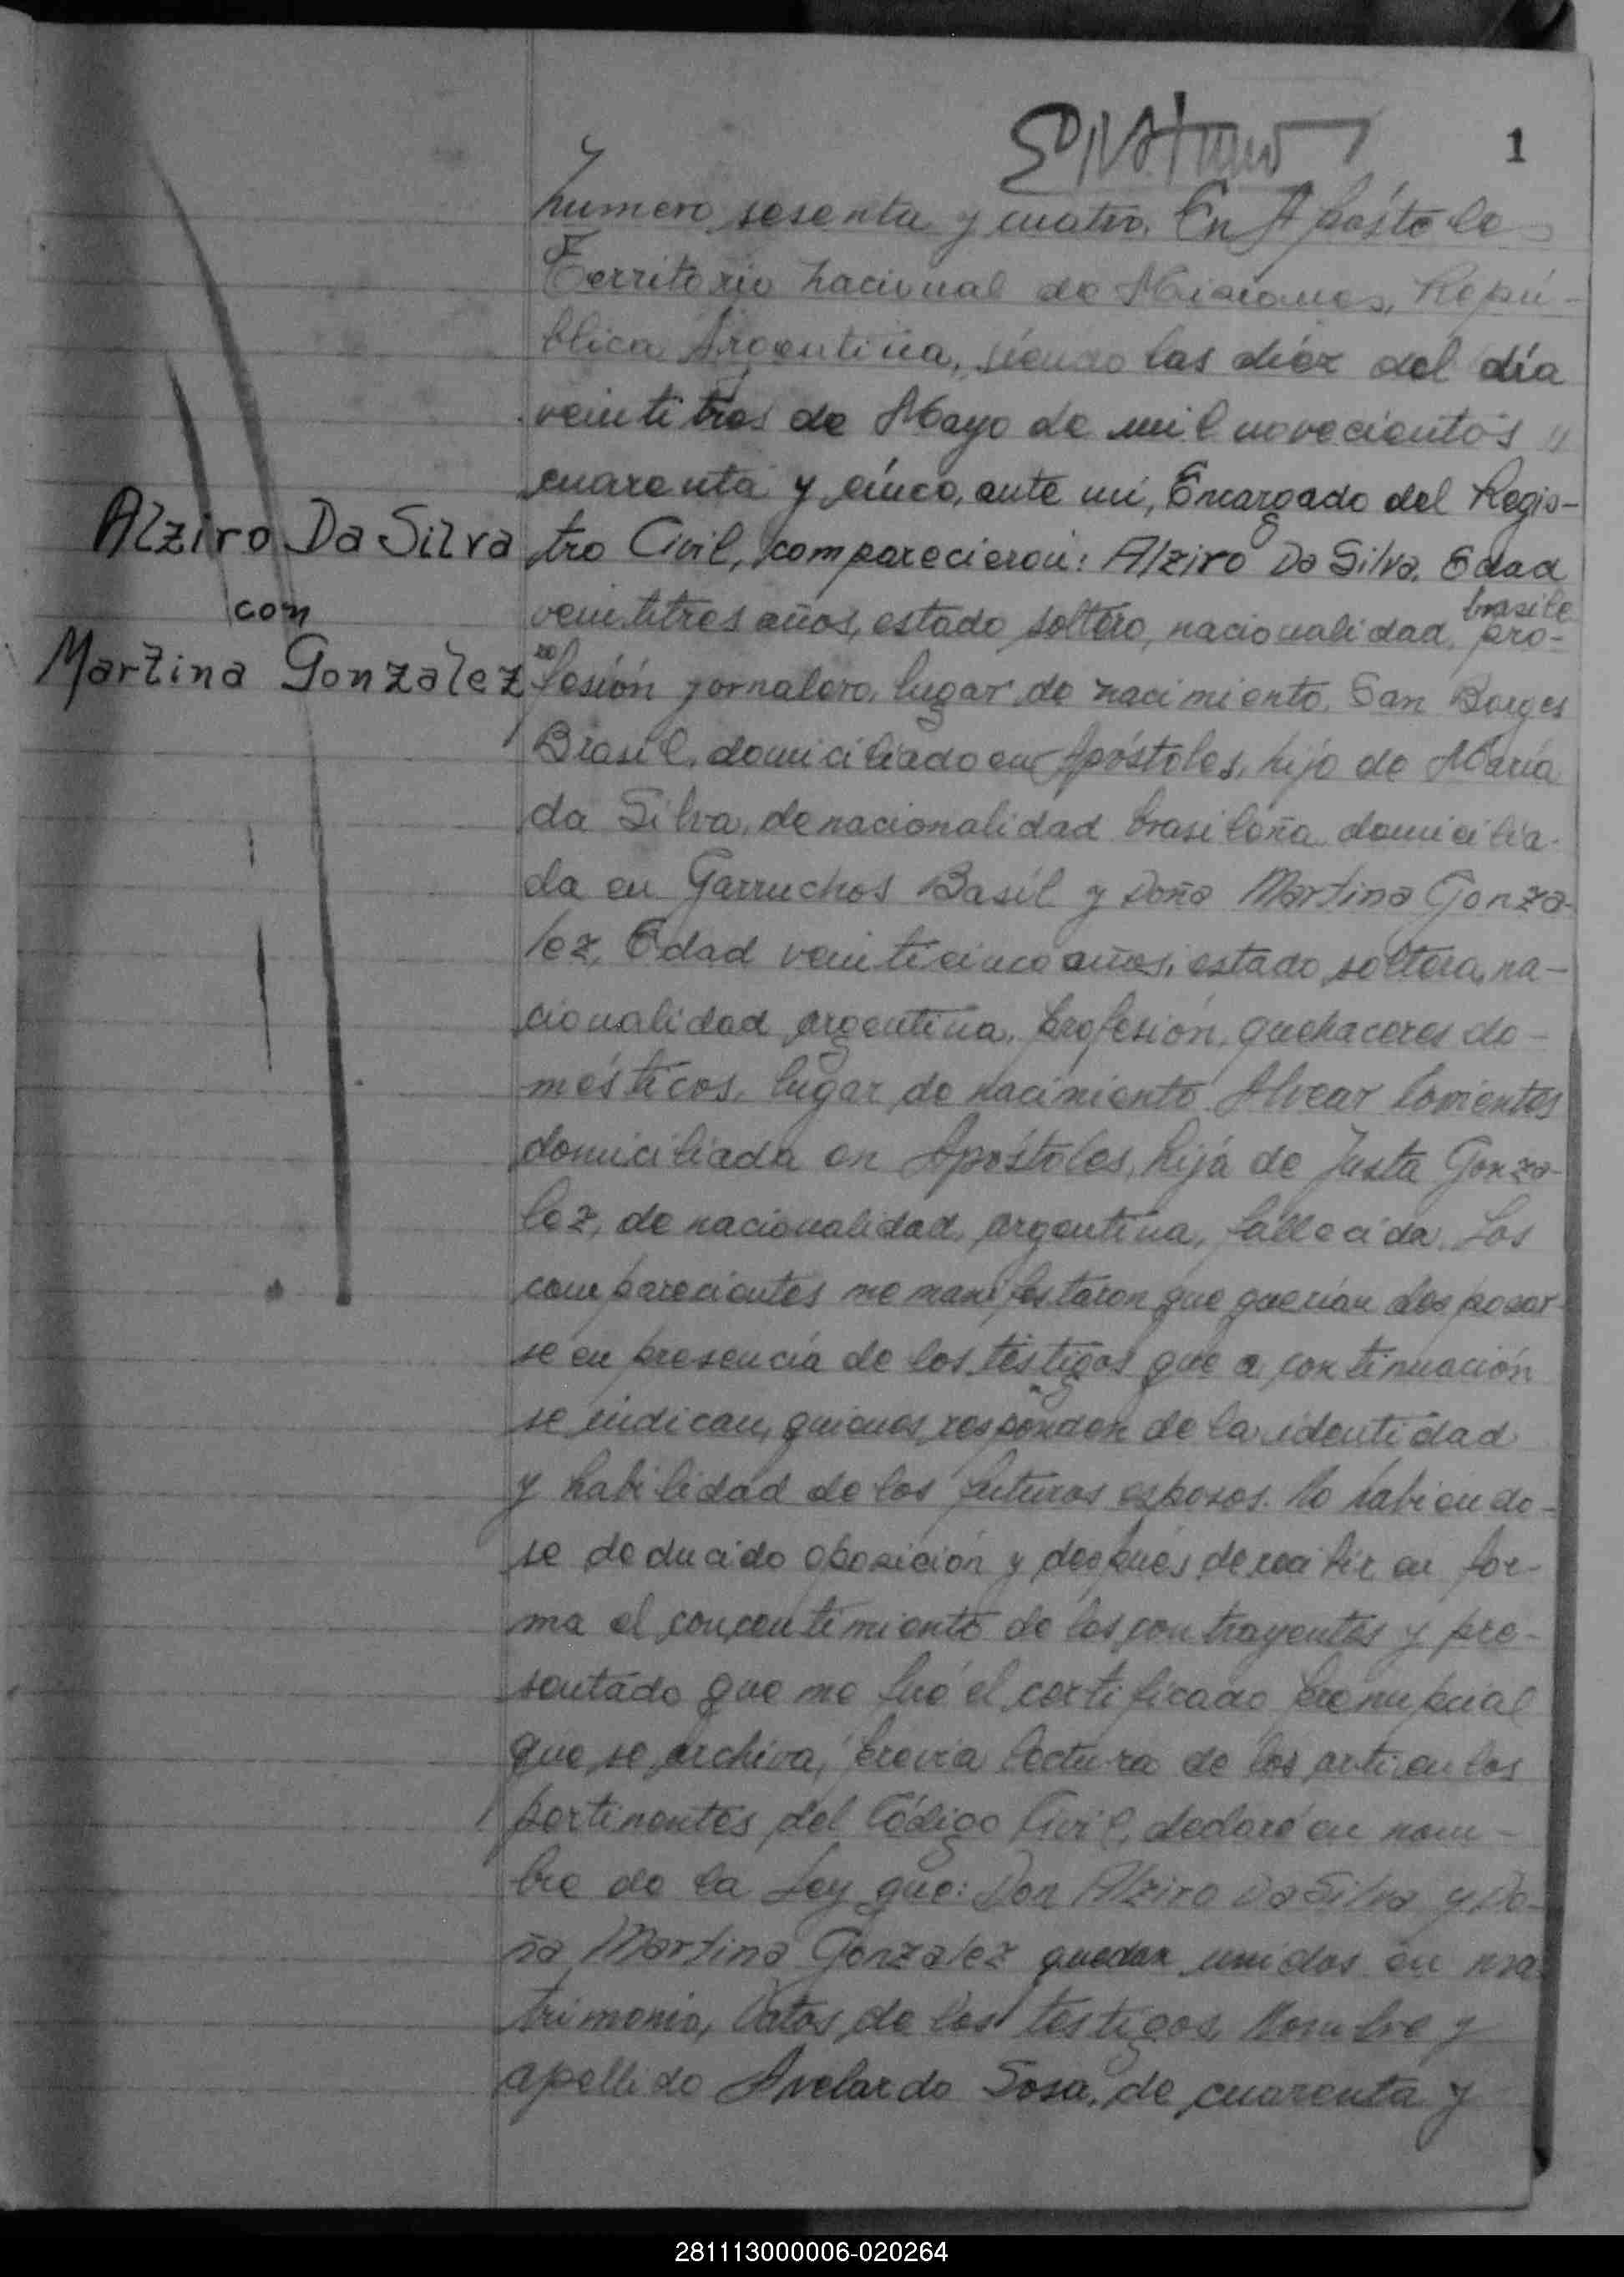 1
Número sesenta y cuatro. En Apóstoles
Territorio Nacional de Misiones, Repú-
blica Argentina, siendo las diéz del día
veintitres de Mayo de mil novecientos y
cuarenta y cinco, ante mí, Encargado del Regis-
Alziro Da Silva
con
Martina Gonzalez
tro Civil, comparecieron: Alziro Da Silva. Edad
veintitres años, estado soltero, nacionalidad, brasile pro-
no fesión jornalero, lugar de nacimiento. San Borges
Brasil, domiciliado en Apóstoles, hijo de María
da Silva, de nacionalidad brasileña domicilia-
da en Garruchos Basíl y Doña Martina Gonza-
lez, Edad veinticinco años, estado soltera, na-
cionalidad argentina, profesión, quehaceres do-
mésticos, lugar de nacimiento Alvear Corrientes
domiciliada en Apóstoles, hija de Justa Gonza-
lez, de nacionalidad argentina, fallecida. Los
comparecientes me manifestaron que querían desposar-
se en presencia de los testigos que a continuación
se indican, quienes responden de la identidad
y habilidad de los futuros esposos. No habiendo-
se deducido oposición y después de recibir en for-
ma el concentimiento de los contrayentes y pre-
sentado que me fué el certificado prenupcial
que se archiva, previa lectura de los articulos
pertinentes del Código Civil, declaré en nom-
bre de la Ley que: Don Alziro Da Silva y Do-
ña Martina Gonzalez quedan unidos en ma-
trimonio, Datos de los testigos Nombre y
apellido Avelardo Sosa, de cuarenta y
281113000006-020264